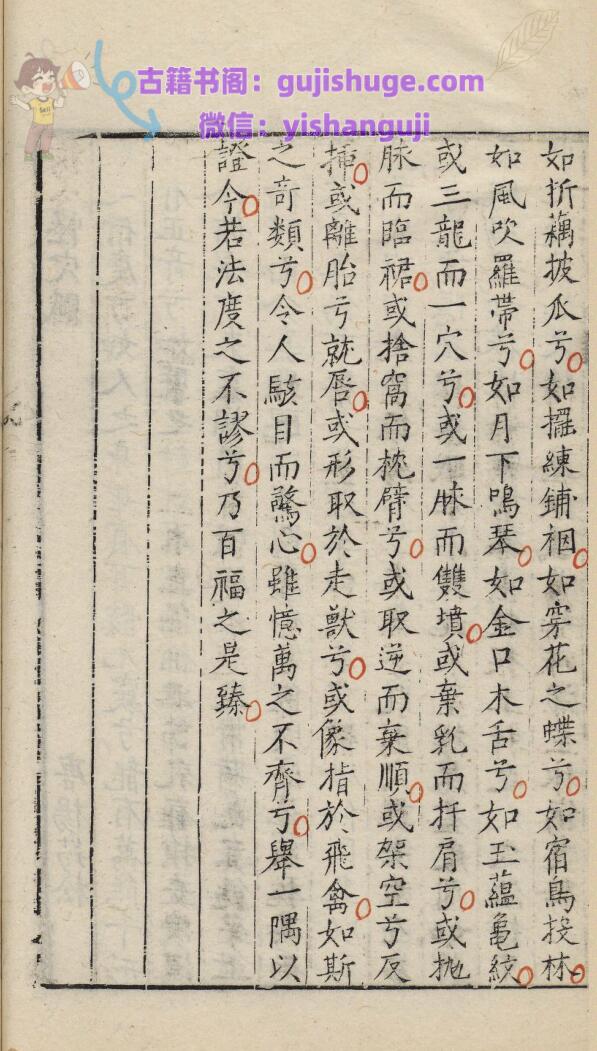 古籍书阁：gujishuge.com
微信：yishanguji
如折藕披瓜兮如擺練鋪裀如穿花之蝶兮如宿鳥投林
如風吹羅帶兮如月下鳴琴如金口木舌兮如玉蘊龜紋
或三龍而一穴兮或一脉而雙墳或棄乳而扦肩兮或抛
脉而臨裙或捨窩而枕臂兮或取逆而棄順或架空兮反
掃或離胎兮就唇或形取於走獸兮或像指於飛禽如斯
之奇類兮令人駭目而驚心雖億萬之不齊兮舉一隅以
證今若法度之不謬兮乃百福之是臻